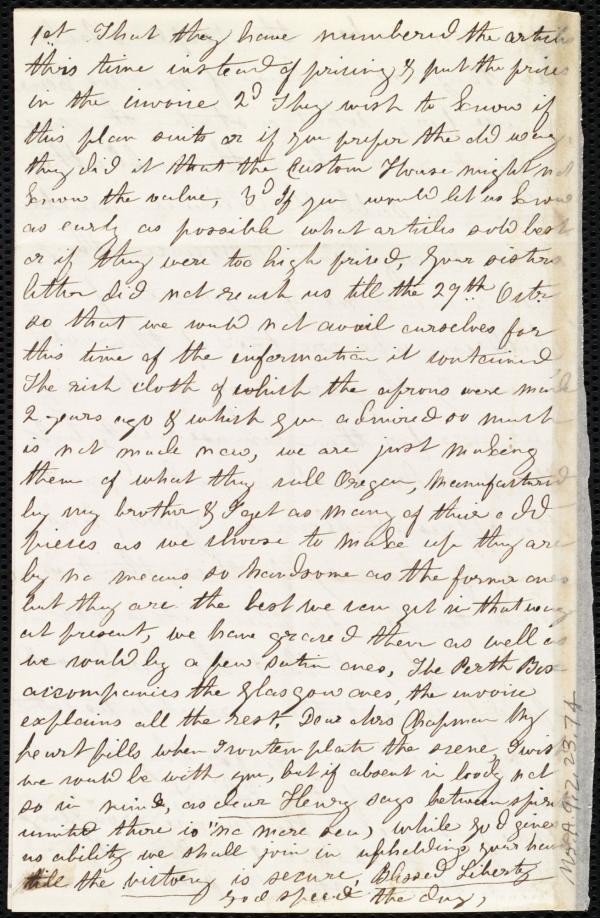 1st That they have numbered the articles
this time instead of pricing & put the prices
in the invoice 2d They wish to know if
this plan suits or if you prefer the old way,
they did it that the Custom House might not
know the value, 3d If you would let us know
as early as possible what articles sold best
or if they were too high priced, your sisters
letter did not reach us till the 29th Octr
so that we could not avail ourselves for
this time of the information it contained
The rich cloth of which the aprons were made
2 years ago & which you admired so much
is not made now, we are just making
them of what they call Oregon, manufactured
by my brother & I get as many of their odd
pieces as we choose to make up they are
by no means so handsome as the former ones
but they are the best we can get in that way
at present, we have graced them as well as
we could by a few satin ones, The Perth Box
accompanies the Glasgow ones, the invoice
explains all the rest, Dear Mrs Chapman My
heart fills when I contemplate the scene, I wish
we could be with you, but if absent in body not
so in mind, as dear Henry says between spirits
united there is "no more sea, while God gives
us ability we shall join in upholding your hands
till the victory is secure, Blessed Liberty
God speed the day,
Ms.A.9.2.23.74